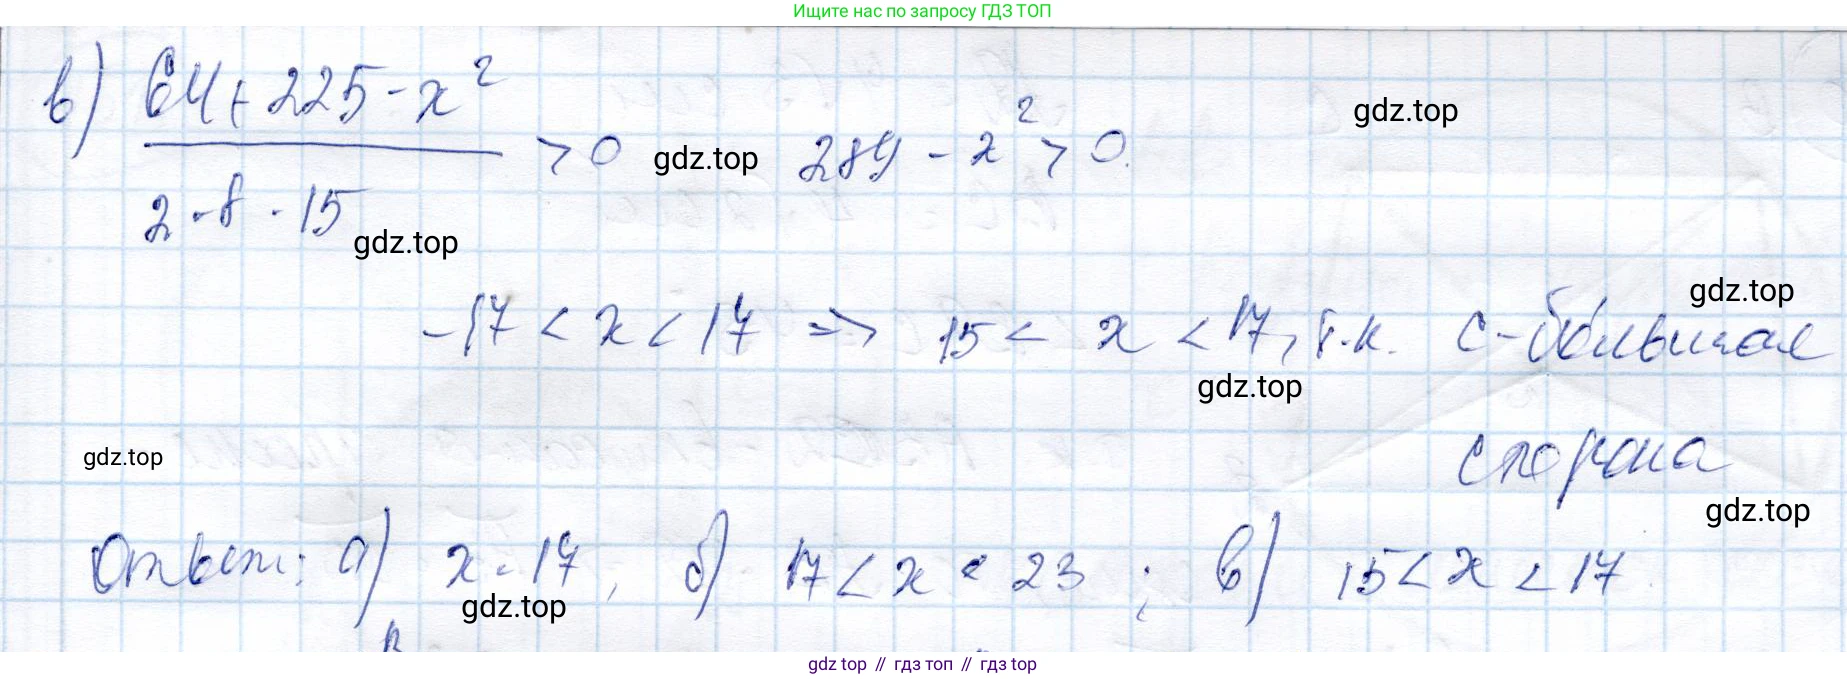 Ищите нас по запросу ГДЗ ТОП
в) (64 + 225 - x²) / (2 · 8 · 15) > 0 gdz.top 289 - x² > 0. gdz.top
gdz.top
gdz.top
-17 < x < 17 => 15 < x < 17, т.к. с - большая
gdz.top
gdz.top сторона
gdz.top
Ответ: а) x = 17, б) 17 < x < 23; в) 15 < x < 17.
gdz.top
gdz top // гдз топ // гдз top